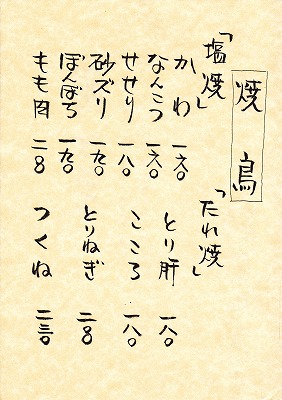 焼鳥
「塩焼」
かわ 一六〇
なんこつ 一六〇
せせり 一八〇
砂ズリ 一九〇
ぼんぼち 一九〇
もも肉 二〇〇
「たれ焼」
とり肝 一八〇
こころ 一八〇
とりねぎ 二〇〇
つくね 二三〇